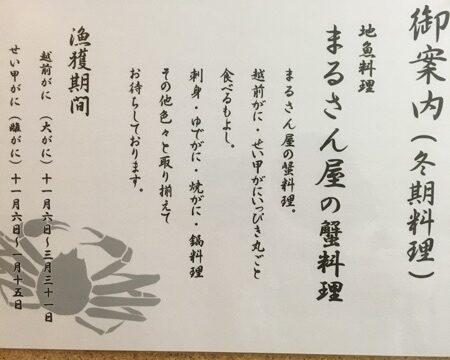 御案内（冬期料理）
地魚料理
まるさん屋の蟹料理
まるさん屋の蟹料理。
越前がに・せい甲がにいっぴき丸ごと
食べるもよし。
刺身・ゆでがに・焼がに・鍋料理
その他色々と取り揃えて
お待ちしております。
漁獲期間
越前がに（大がに）十一月六日～三月三十一日
せい甲がに（雌がに）十一月六日～一月十五日